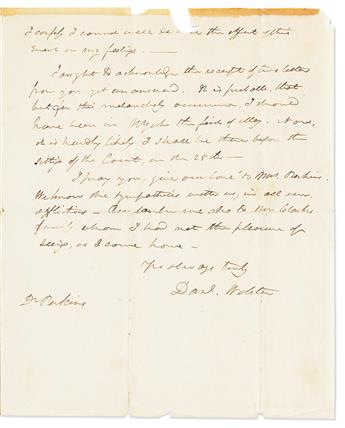 I confess I cannot well describe the effect of this
event on my feelings. —
I ought to acknowledge the receipt of two letters
from you yet unanswered. It is probable, that
but for this melancholy occurrence, I should
have been in the first of May. Now,
it is hardly likely I shall be there before the
sitting of the Court, on the 25th —
I pray you, give our love to Mrs. Perkins.
We know she sympathises with us, in all our
affliction — Remember me also to Mr Clark's
family whom I had not the pleasure of
seeing, as I came home —
Yrs always truly
Danl. Webster
Dr Perkins